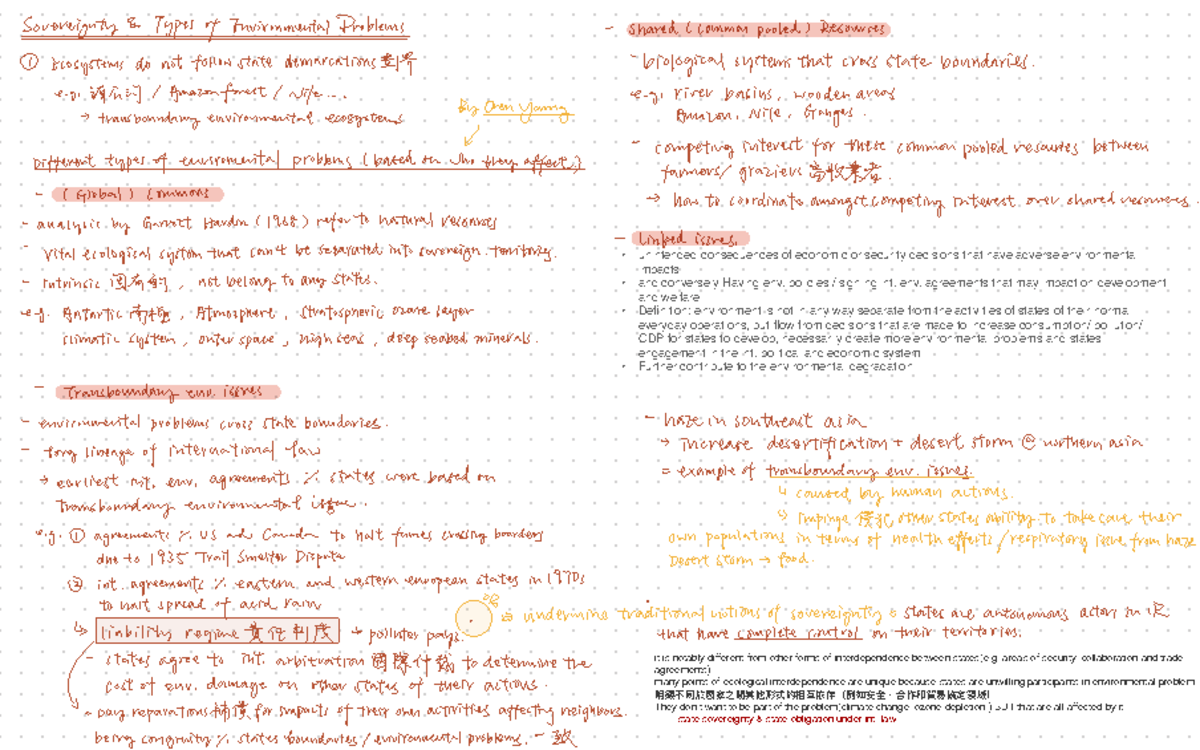 Sovereignty & Types of Environmental Problems
① Ecosystems do not follow state demarcations 劃界
e.g. 湄公河 / Amazon forest / Nile ...
→ transboundary environmental ecosystems
By Oren Young
Different types of enviromental problems (based on who they affect.)
- (Global) Commons
- analytic by Garrett Hardin (1968) refer to natural resources
- Vital ecological system that can't be separated into sovereign territories.
- Intrinsic 固有的, not belong to any states.
e.g. Antartic 南極, Atmosphere, Stratospheric ozone layer
climatic system, outer space, high seas, deep seabed minerals.
- Transboundary env. issues
- environmental problems cross state boundaries.
- long lineage of international law
→ earliest int. env. agreements % states were based on
transboundary environmental issue..
e.g. ① agreements % US and Canada to halt fumes crossing boarders
due to 1935 Trail Smelter Dispute
② int. agreements % eastern and western european states in 1970s
to halt spread of acid rain
↳ liability regime 責任制度 → polluter pays.
- states agree to int. arbitration 國際仲裁 to determine the
cost of env. damage on other states of their actions.
pay reparations 補償 for impacts of their own activities affecting neighbours.
being congruity % states boundaries / environmental problems. 一致
- Shared (common pooled) Resources
- biological systems that cross state boundaries.
e.g. river basins, wooden areas
Amazon, Nile, Ganges.
- competing interest for these common pooled resources between
farmers / graziers 畜牧業者.
→ how to coordinate amongst competing interest over shared resources.
- Linked issues.
• unintended consequences of economic or security decisions that have adverse environmental
impacts
• and conversely Having env. policies / signing int. env. agreements that may impact on development
and welfare
• Definition: environment is not in any way separate from the activities of states of their normal
everyday operations, but flow from decisions that are made to increase consumption/ pollution/
GDP for states to develop, necessarily create more environmental problems and states'
engagement in the int. political and economic system
• Further contribute to the environmental degradation
- haze in southeast asia
→ increase desertification + desert storm @ northern asia
= example of transboundary env. issues.
↳ caused by human actions.
↳ impinge 侵犯 other states ability to take care their
own populations in terms of health effects / respiratory issue from haze
Desert storm → food.
undermine traditional notions of sovereignty & states are autonomous actors in IR
that have complete control on their territories.
it is notably different from other forms of interdependence between states (e.g. areas of security, collaboration and trade
agreements)
many points of ecological interdependence are unique because states are unwilling participants in environmental problem
明顯不同於國家之間其他形式的相互依存（例如安全、合作和貿易協定領域）
They don't want to be part of the problem (climate change, ozone depletion) BUT that are all affected by it
state sovereignty & state obligation under int. law